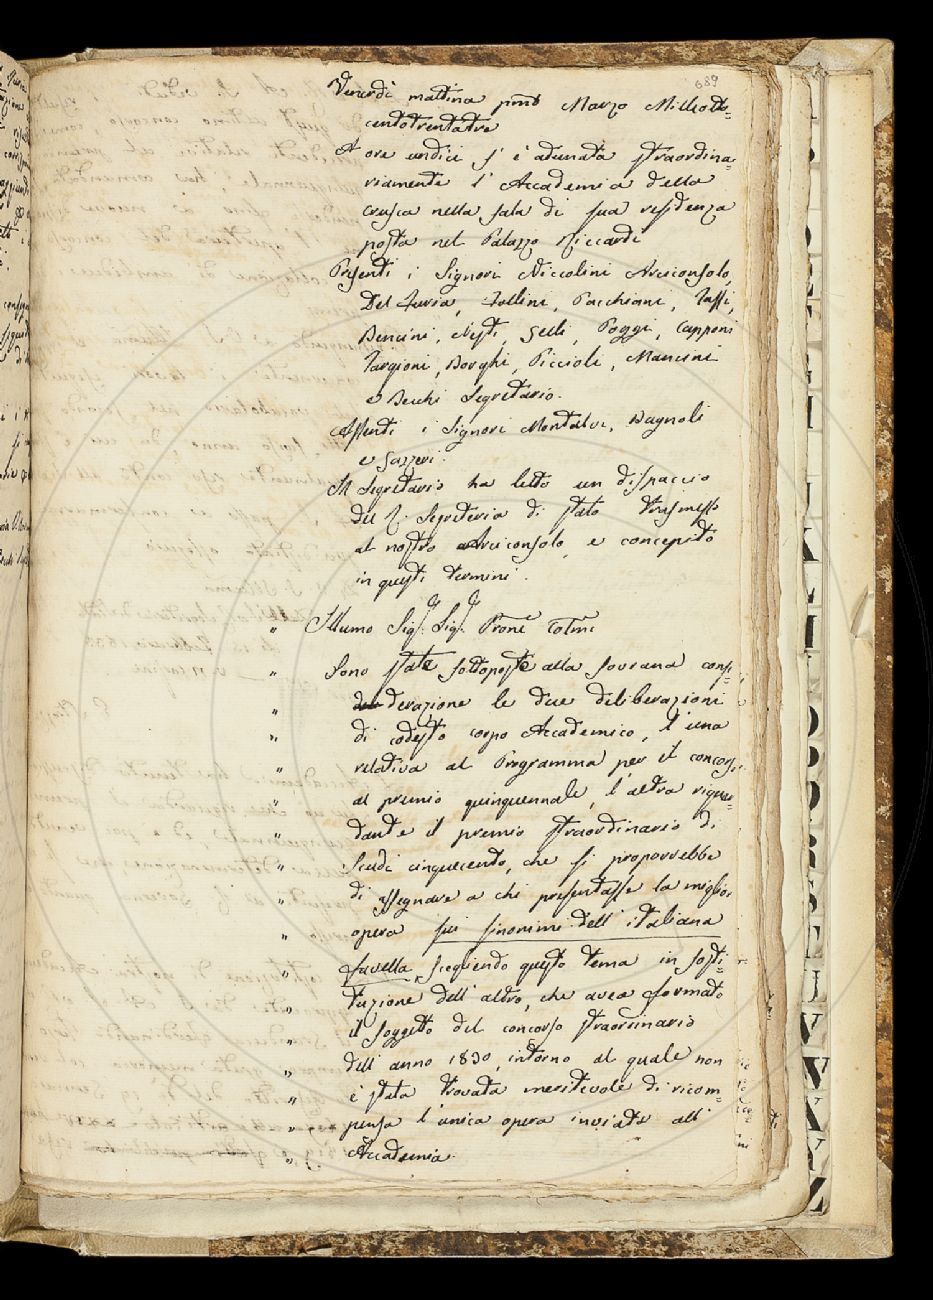 689
Venerdì mattina primo Marzo Milleotto=
centotrentatre
A ore undici s' è adunata straordina=
riamente l' Accademia della
Crusca nella sala di sua residenza
posta nel Palazzo Riccardi
Presenti i Signori Niccolini Arciconsolo,
Del Furia, Follini, Pacchiani, Tassi,
Bencini, Nesti, Gelli, Poggi, Capponi
Targioni, Borghi, Piccioli, Mancini
e Becchi Segretario.
Assenti i Signori Montalvi, Bagnoli
e Gazzeri.
Il Segretario ha letto un dispaccio
del R. Segreteria di stato trasmesso
al nostro Arciconsolo, e concepito
in questi termini.
" Illumo Sig. Sig. Prone Colmo
" Sono state sottoposte alla sovrana consi=
" derazione le due deliberazioni
" di codesto corpo Accademico, l' una
" relativa al Programma per il concorso
" al premio quinquennale, l' altra riguar=
" dante il premio straordinario di
" Scudi cinquecento, che si proporrebbe
di assegnare a chi presentasse la miglior
" opera sui sinonimi dell' italiana
" favella, scegliendo questo tema in sosti=
" tuzione dell' altro, che avea formato
" il soggetto del concorso straorsinario
" dell' anno 1830, intorno al quale non
" è stata trovata meritevole di ricom=
" pensa l' unica opera inviata all'
" Accademia.